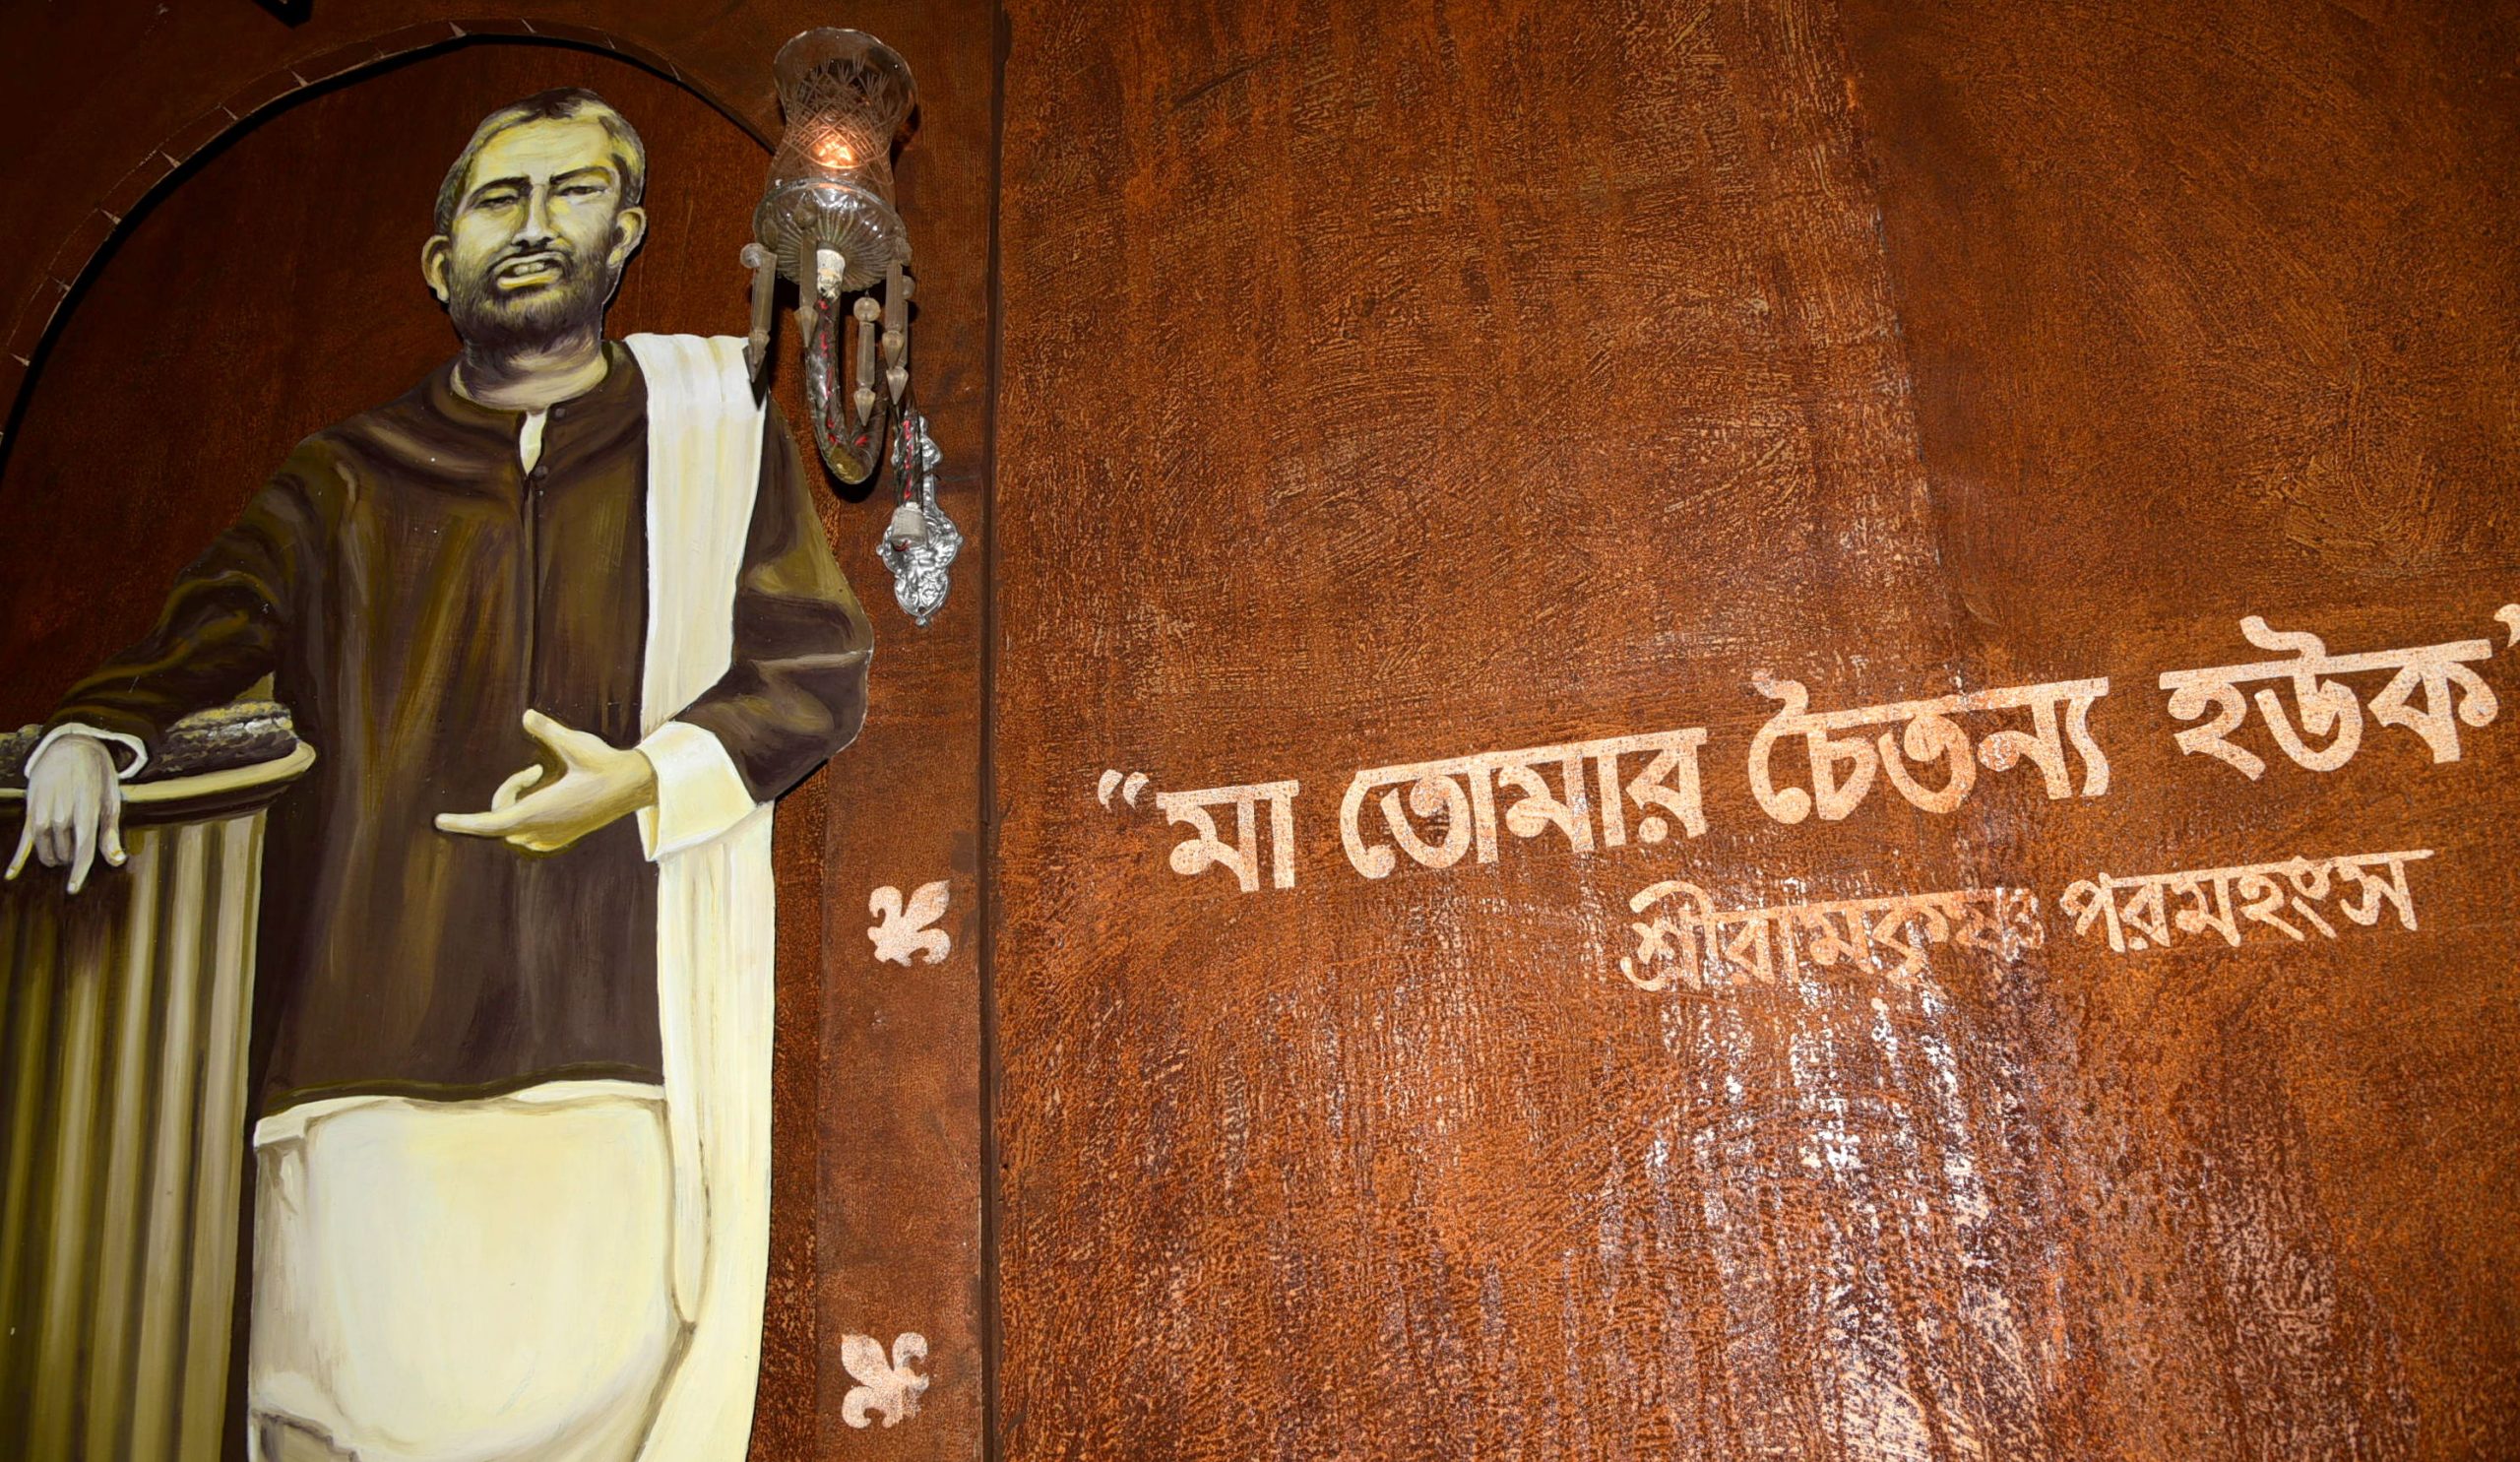 “মা তোমার চৈতন্য হউক”
শ্রীরামকৃষ্ণ পরমহংস